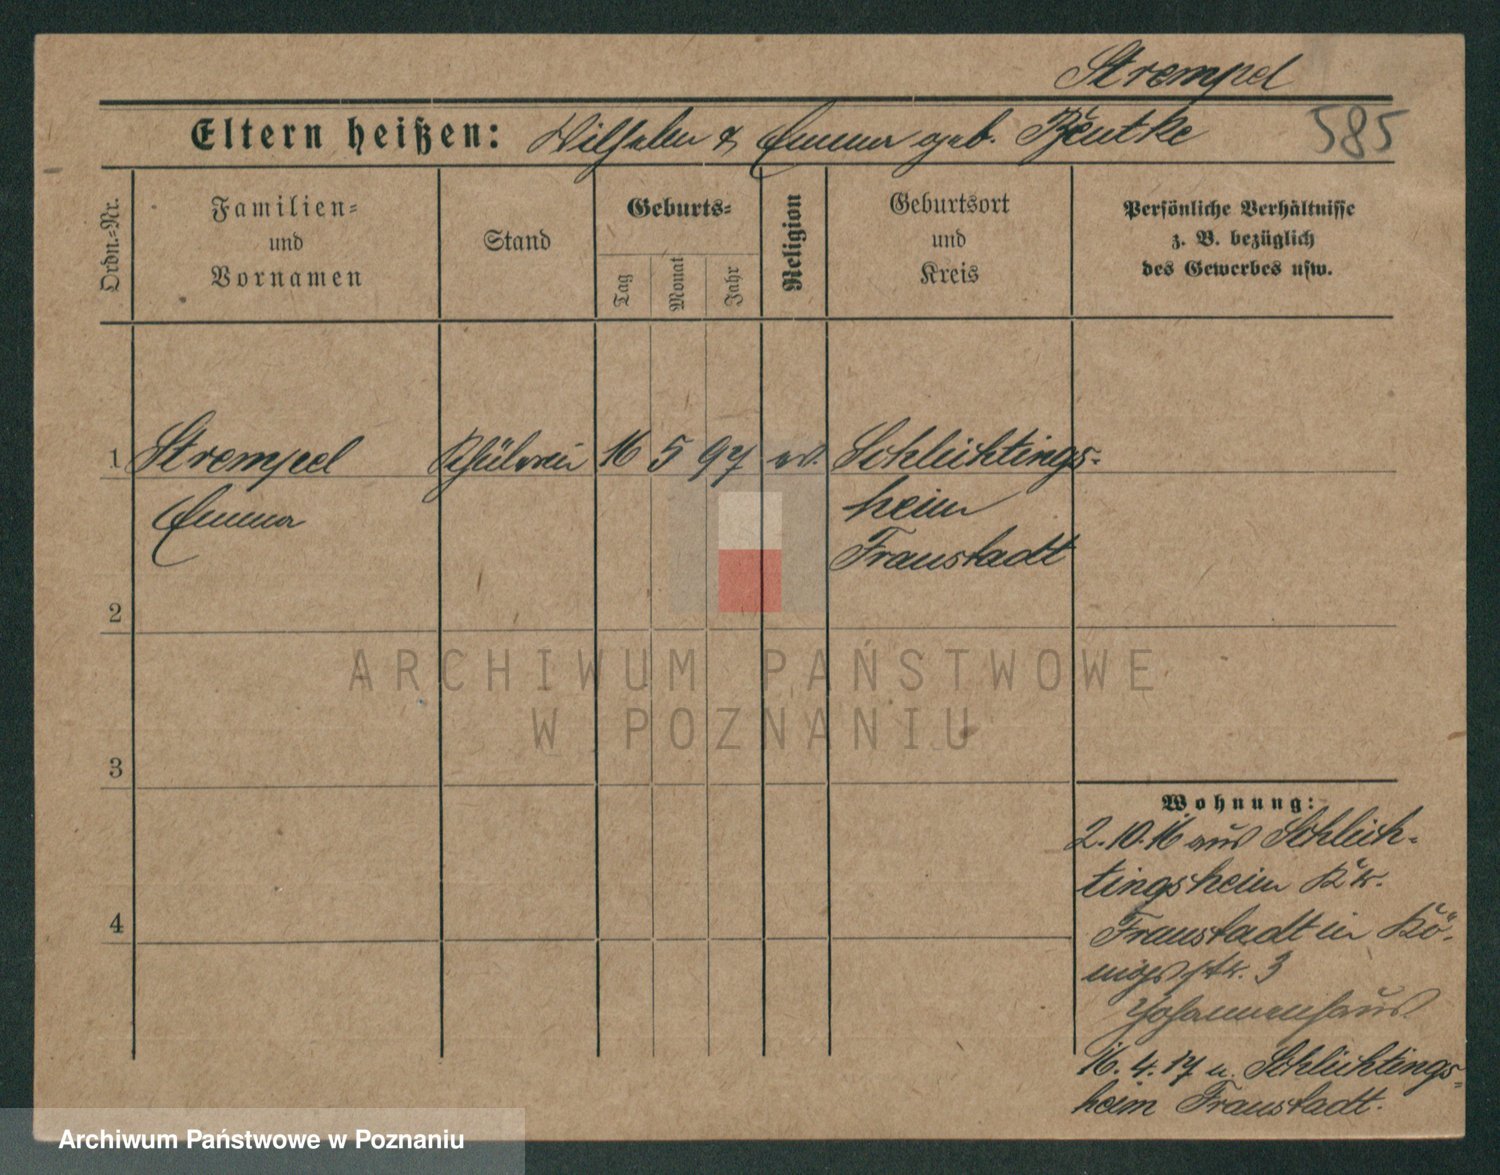 Strempel
585
Eltern heißen: Wilhelm & Emma geb.
Ordn.-Nr.
Familien-
und
Vornamen
Stand
Geburts-
Tag
Monat
Jahr
Religion
Geburtsort
und
Kreis
Persönliche Verhältnisse
z. B. bezüglich
des Gewerbes usw.
1 Strempel Schülerin 16 5 97 ev. Schlichtings-
Emma heim
Fraustadt
2
ARCHIWUM PAŃSTWOWE
W POZNANIU
3
Wohnung:
2.10.16 aus Schlich-
tingsheim Kr.
Fraustadt in Kö-
nigstr. 3
Johannenhaus
16.4.17 n. Schlichtings-
heim Fraustadt.
4
Archiwum Państwowe w Poznaniu